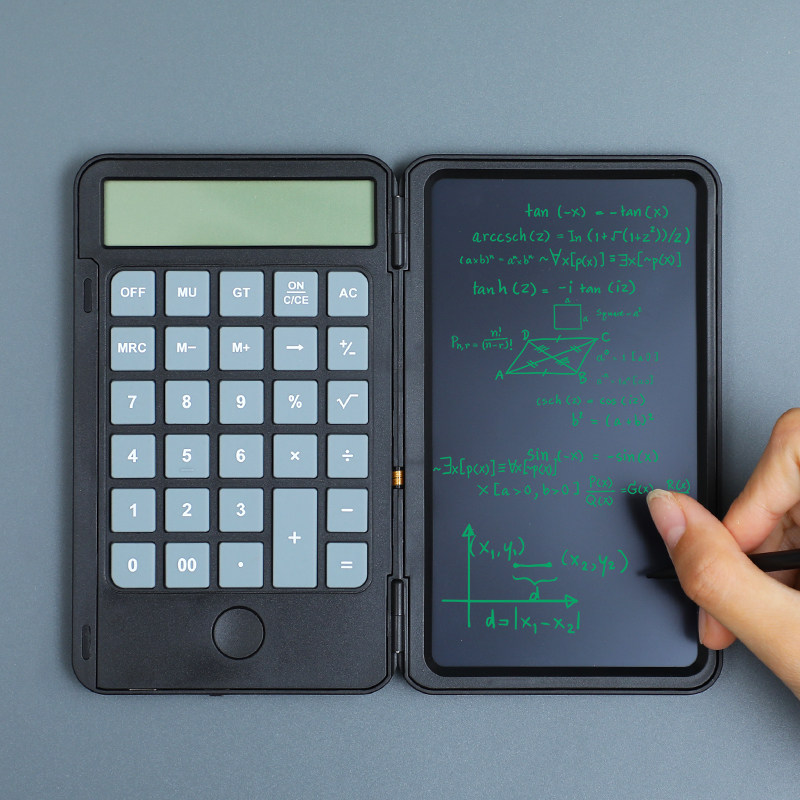 OFF MU GT ON C/CE AC
MRC M− M+ → +/−
7 8 9 % √
4 5 6 × ÷
1 2 3 + −
0 00 · =
tan (-x) = -tan(x)
arccsch(z) = In (1+√(1+z²))/z)
(a×b)ⁿ = aⁿ×bⁿ ~∀x[p(x)] ≡ ∃x[~p(x)]
tanh (z) = -i tan (iz)
a
a Square = a²
Pn,r = n!/(n-r)!
D C
A B
csch (z) =
b² =
sin (-x) = -sin(x)
~∃x[p(x)] ≡ ∀x[~p(x)]
x [a>0, b>0] P(x)/Q(x) = G(x) R(x)
(x₁, y₁) (x₂, y₂)
d
d = |x₁ - x₂|